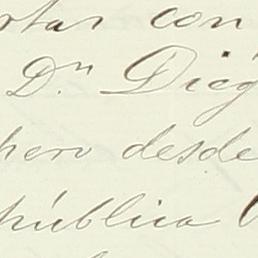 rtar con
Dn. Dieg
hero desde
pública